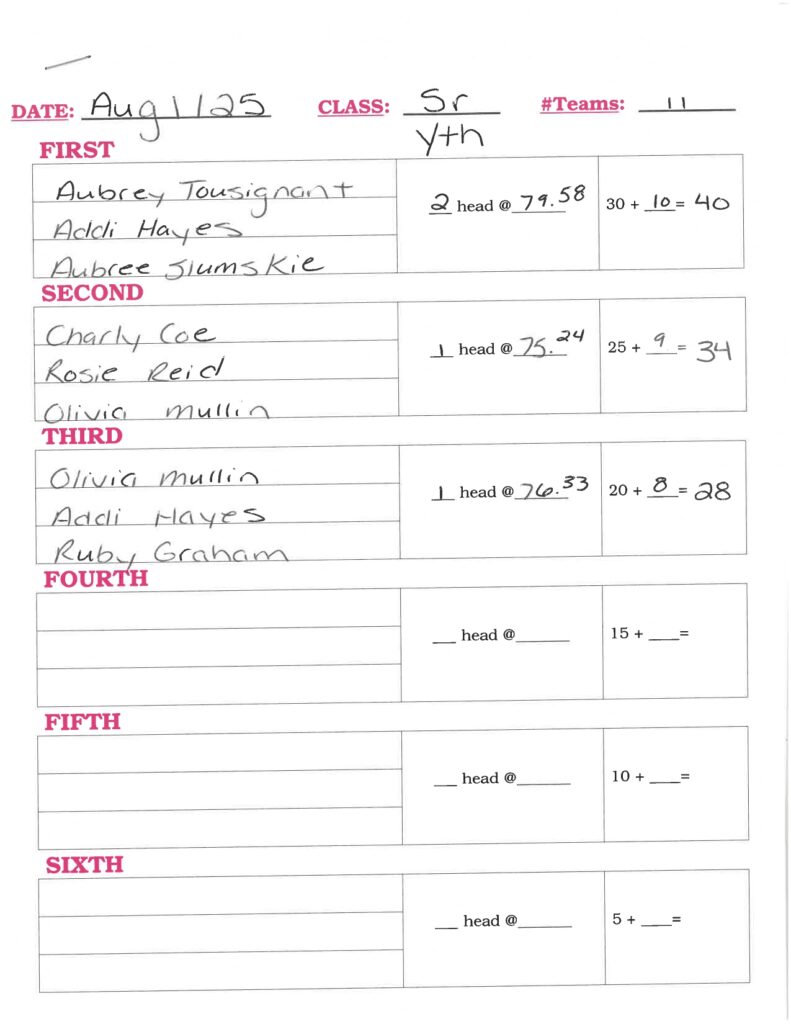 DATE: Aug 1/25 CLASS: Sr Yth #Teams: 11
FIRST
Aubrey Tousignant
Addi Hayes
Aubree Slumskie
2 head @ 79.58
30 + 10 = 40
SECOND
Charly Coe
Rosie Reid
Olivia Mullin
1 head @ 75.24
25 + 9 = 34
THIRD
Olivia Mullin
Addi Hayes
Ruby Graham
1 head @ 76.33
20 + 8 = 28
FOURTH
__ head @______
15 + ___=
FIFTH
__ head @______
10 + ___=
SIXTH
__ head @______
5 + ___=